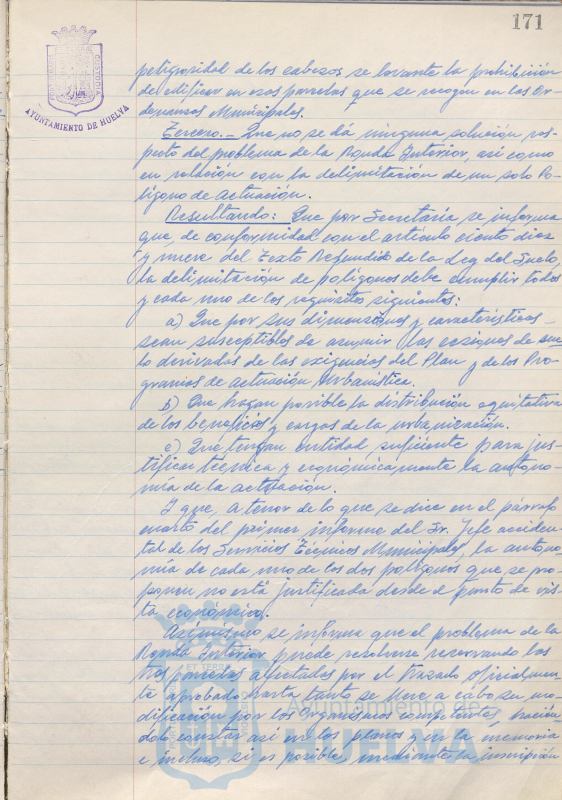 171
AYUNTAMIENTO DE HUELVA
peligrosidad de los cabezos se levante la prohibición
de edificar en esas parcelas que se recogen en las Or-
denanzas Municipales.
Tercero.- Que no se dá ninguna solución res-
pecto del problema de la Ronda Interior, asi como
en relación con la delimitación de un solo Po-
lígono de actuación.
Resultando: Que por Secretaría se informa
que, de conformidad con el artículo ciento diez
y nueve del Texto Refundido de la Ley del Suelo,
la delimitación de polígonos debe cumplir todos
y cada uno de los requisitos siguientes:
a) Que por sus dimensiones y características
sean susceptibles de asumir las cesiones de sue-
lo derivadas de las exigencias del Plan y de los Pro-
gramas de actuación Urbanística.
b) Que hagan posible la distribución equitativa
de los beneficios y cargas de la urbanización.
c) Que tengan entidad suficiente para jus-
tificar técnica y económicamente la autono-
mía de la actuación.
Y que, a tenor de lo que se dice en el párrafo
cuarto del primer informe del Sr. Jefe acciden-
tal de los Servicios Técnicos Municipales, la autono-
mía de cada uno de los dos polígonos que se pro-
ponen no está justificada desde el punto de vis-
ta económico.
Asimismo se informa que el problema de la
Ronda Interior puede resolverse reservando las
tres parcelas afectadas por el trazado oficialmen-
te aprobado hasta tanto se lleve a cabo su mo-
dificación por los Organismos competentes, hacién-
dolo constar asi en los planos y en la memoria
e incluso, si es posible, mediante la inscripción
Ayuntamiento de
HUELVA